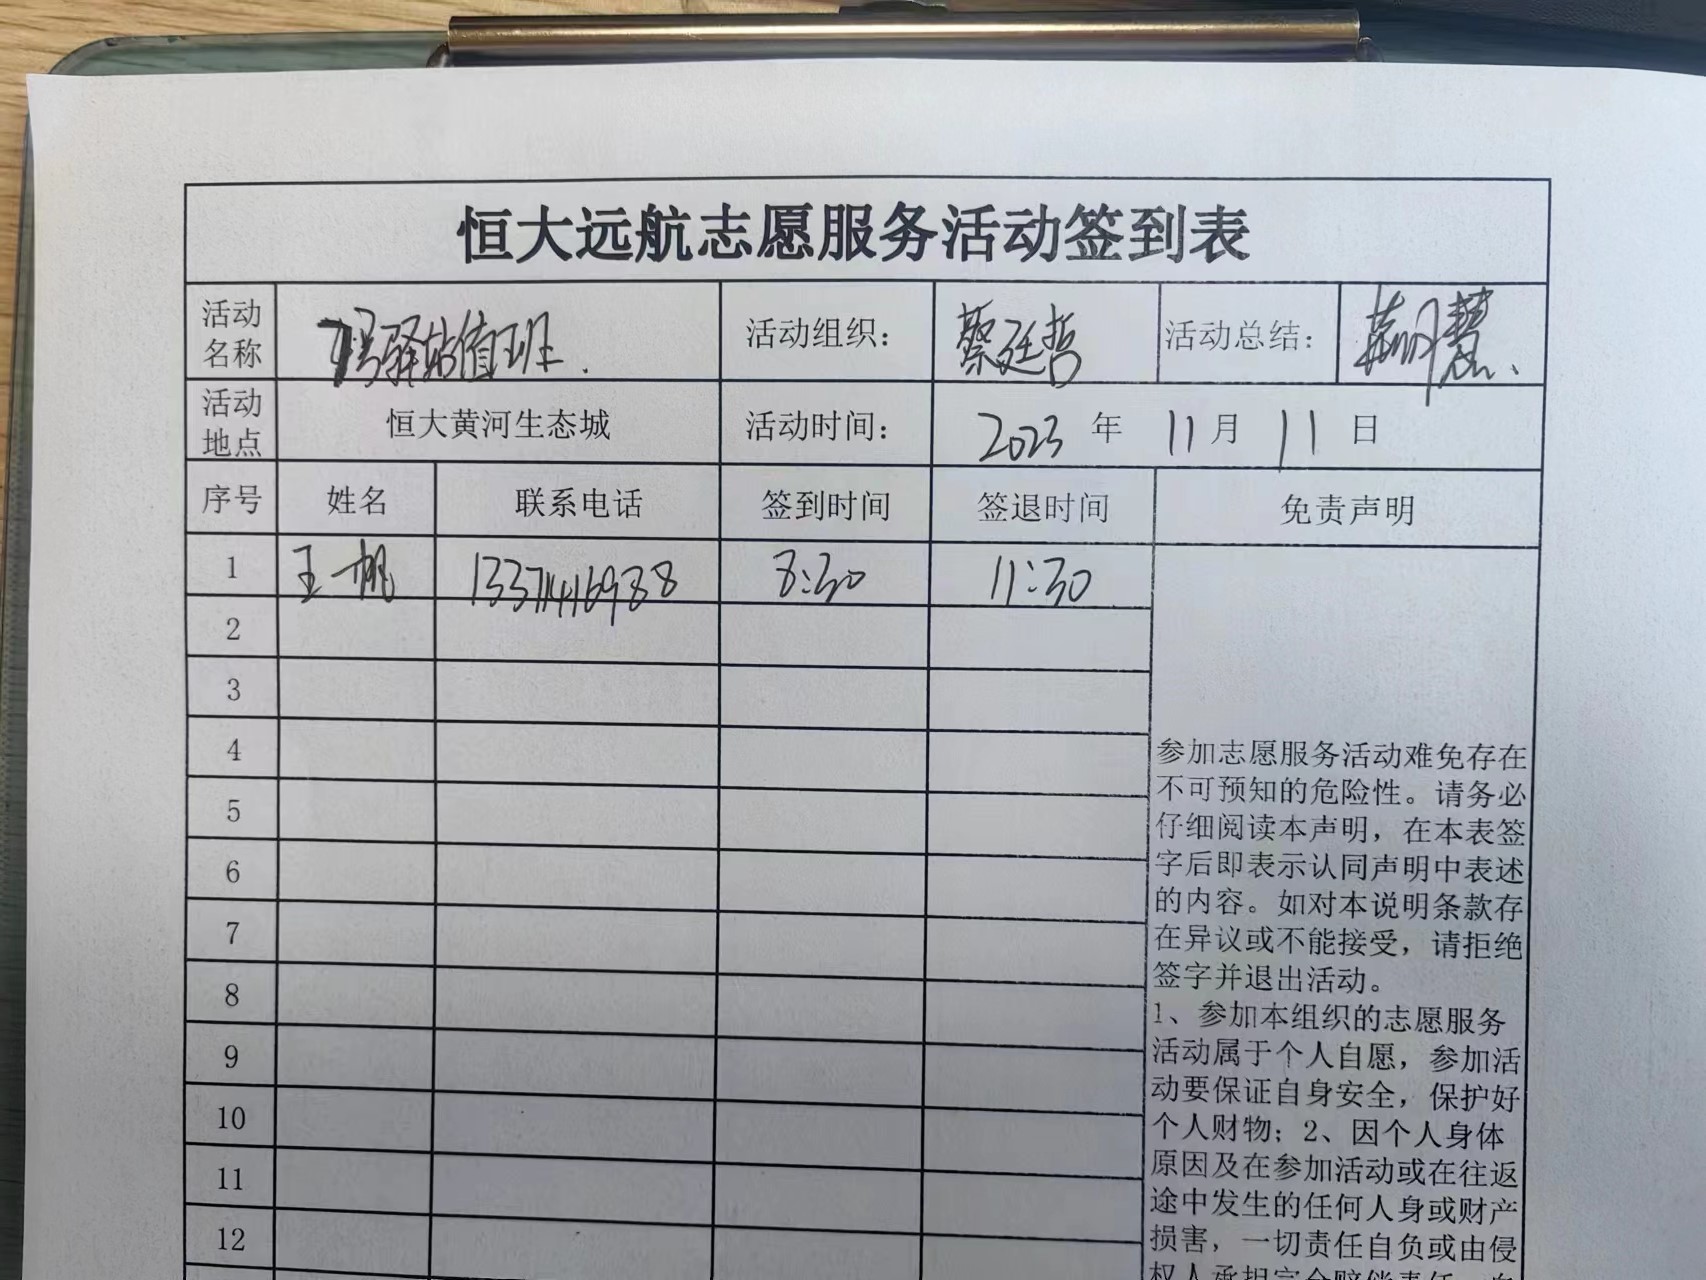 恒大远航志愿服务活动签到表
活动名称 驿站值班. 活动组织： 蔡廷哲 活动总结： 慧、
活动地点 恒大黄河生态城 活动时间： 2023 年 11 月 11 日
序号 姓名 联系电话 签到时间 签退时间 免责声明
1 王一帆 8:30 11:30
2
3
4
5
6
7
8
9
10
11
12
参加志愿服务活动难免存在
不可预知的危险性。请务必
仔细阅读本声明，在本表签
字后即表示认同声明中表述
的内容。如对本说明条款存
在异议或不能接受，请拒绝
签字并退出活动。
1、参加本组织的志愿服务
活动属于个人自愿，参加活
动要保证自身安全，保护好
个人财物；2、因个人身体
原因及在参加活动或在往返
途中发生的任何人身或财产
损害，一切责任自负或由侵
权人承担完全赔偿责任